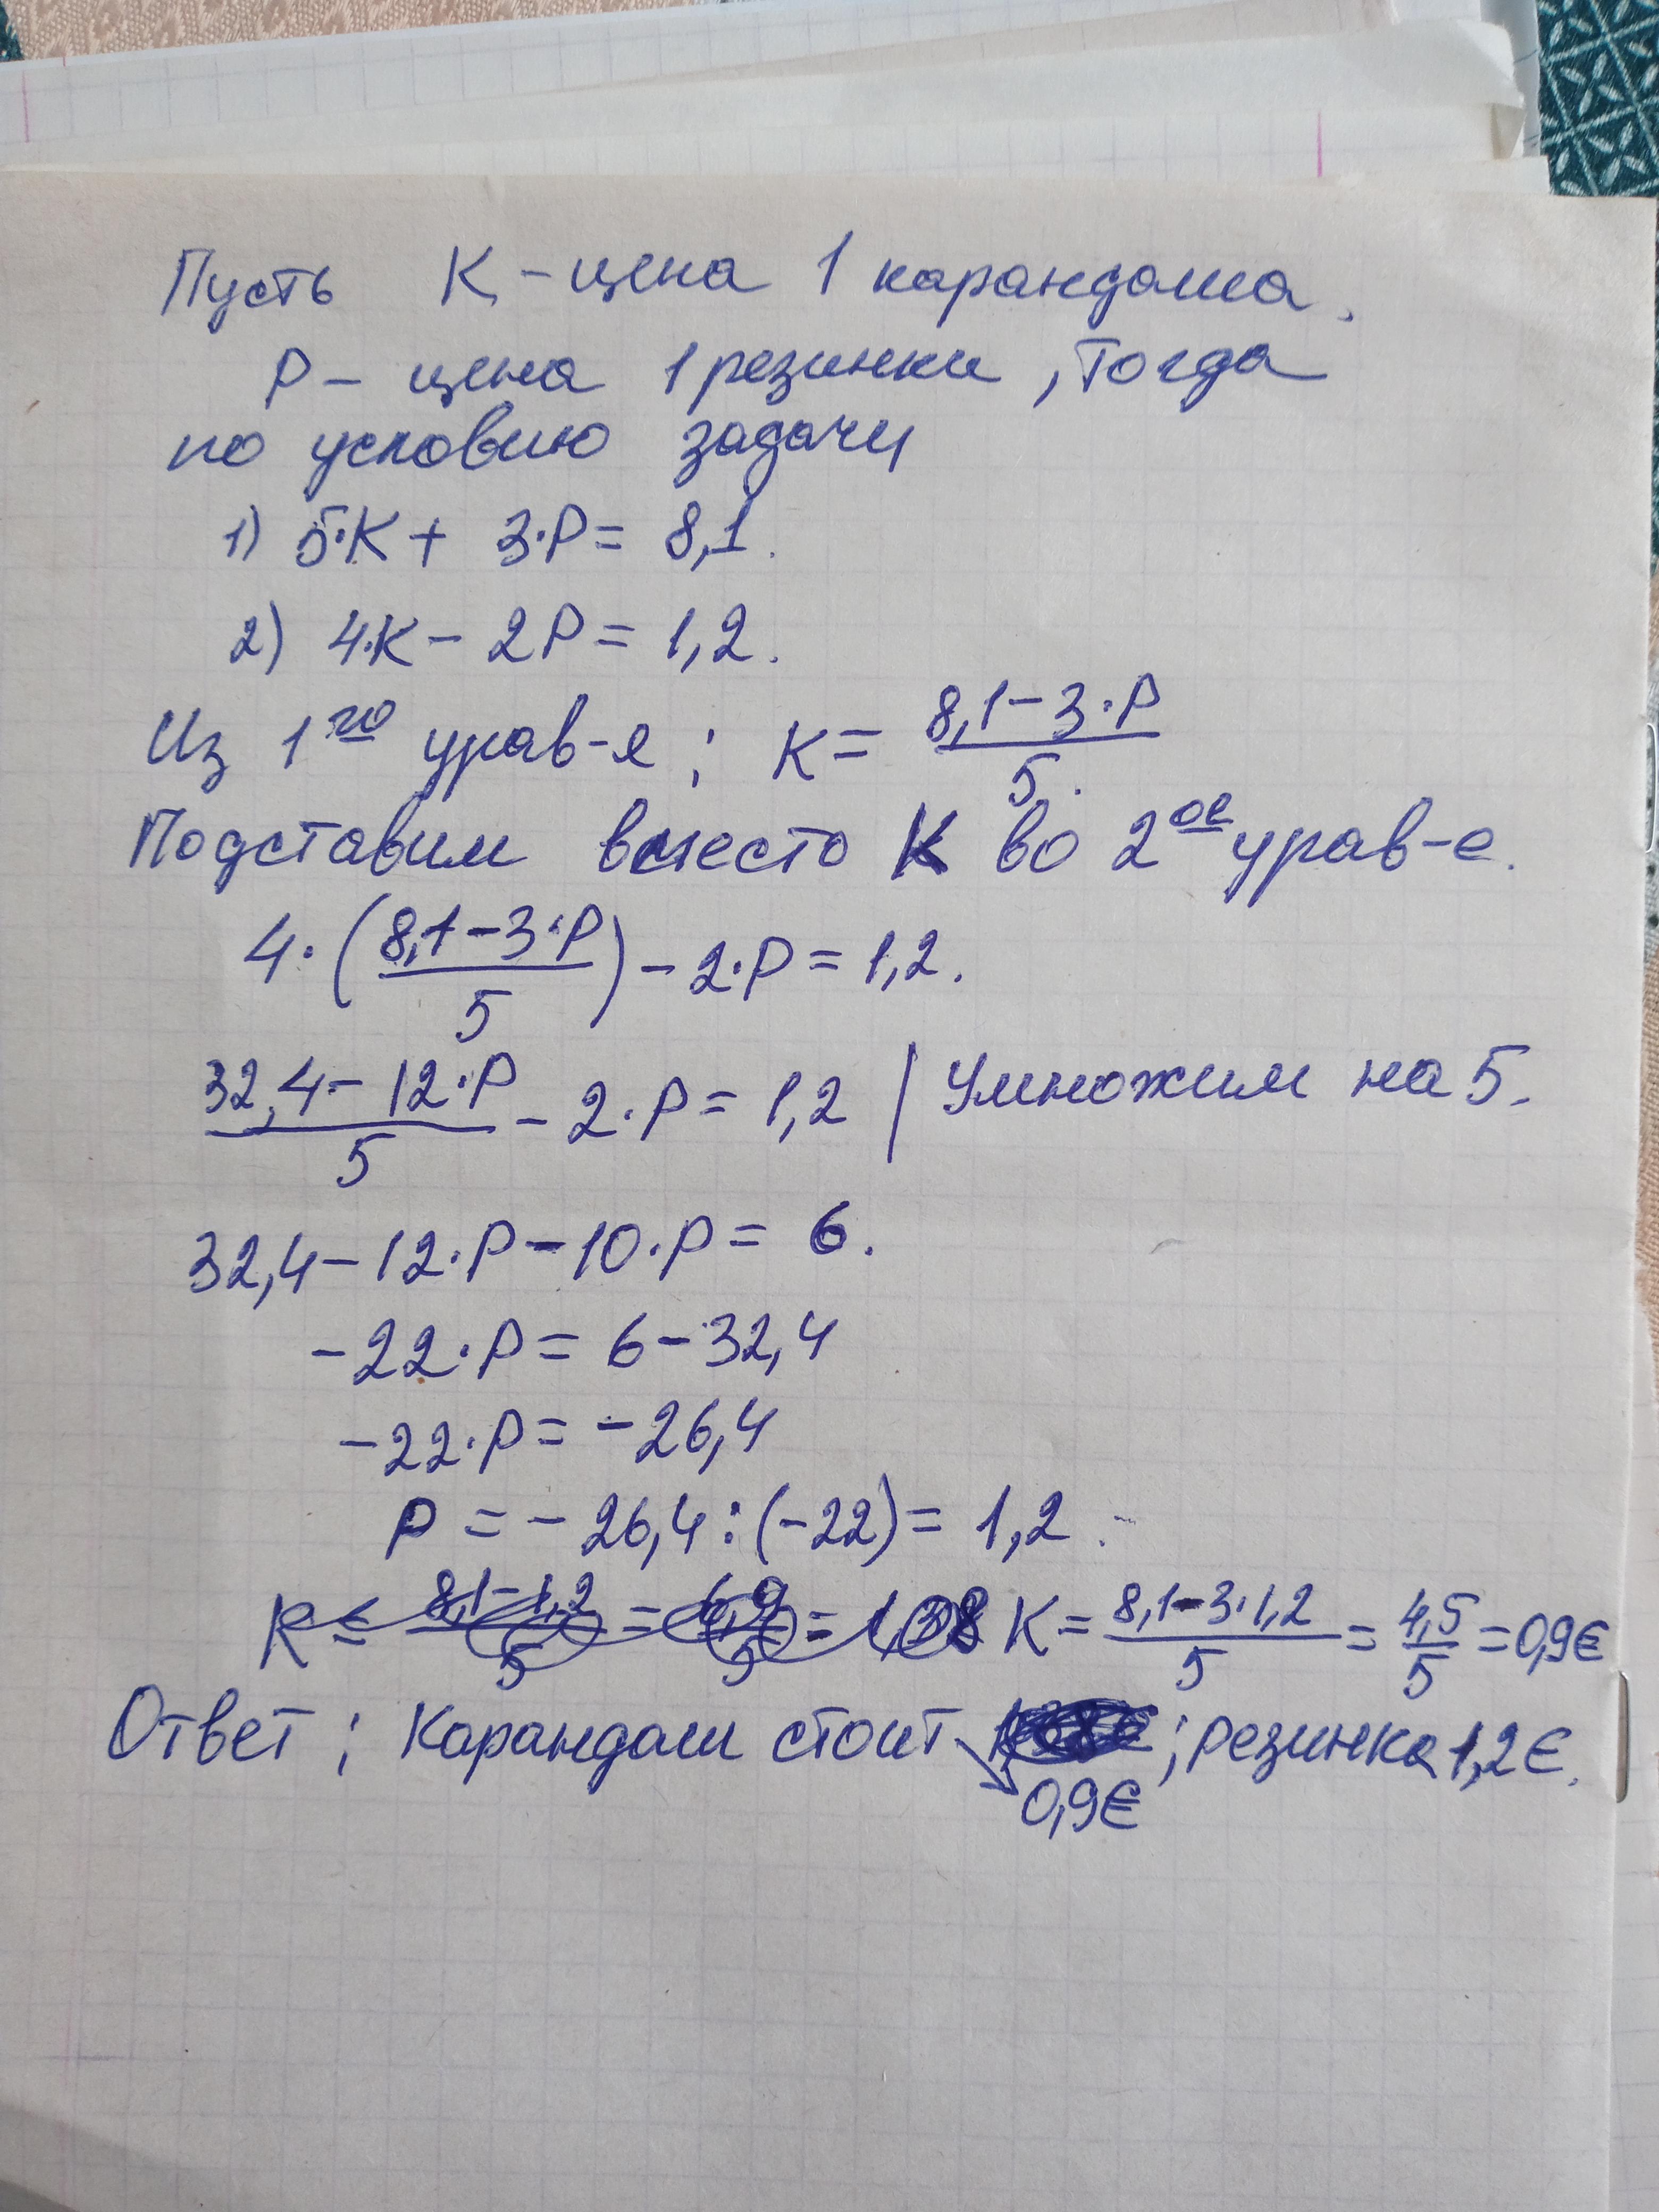 Пусть К – цена 1 карандаша.
Р – цена 1 резинки, тогда
по условию задачи
1) 5·К + 3·Р = 8,1.
2) 4·К – 2Р = 1,2.
Из 1го урав-я; К = (8,1 – 3·Р)/5.
Подставим вместо К во 2ое урав-е.
4·((8,1 – 3·Р)/5) – 2·Р = 1,2.
(32,4 – 12·Р)/5 – 2·Р = 1,2 / Умножим на 5.
32,4 – 12·Р – 10·Р = 6.
-22·Р = 6 – 32,4
-22·Р = -26,4
Р = -26,4 : (-22) = 1,2.
К = (8,1 – 1,2)/5 = 6,9/5 = 1,38 К = (8,1 – 3·1,2)/5 = 4,5/5 = 0,9€
Ответ; Карандаш стоит ; резинка 1,2€.
0,9€